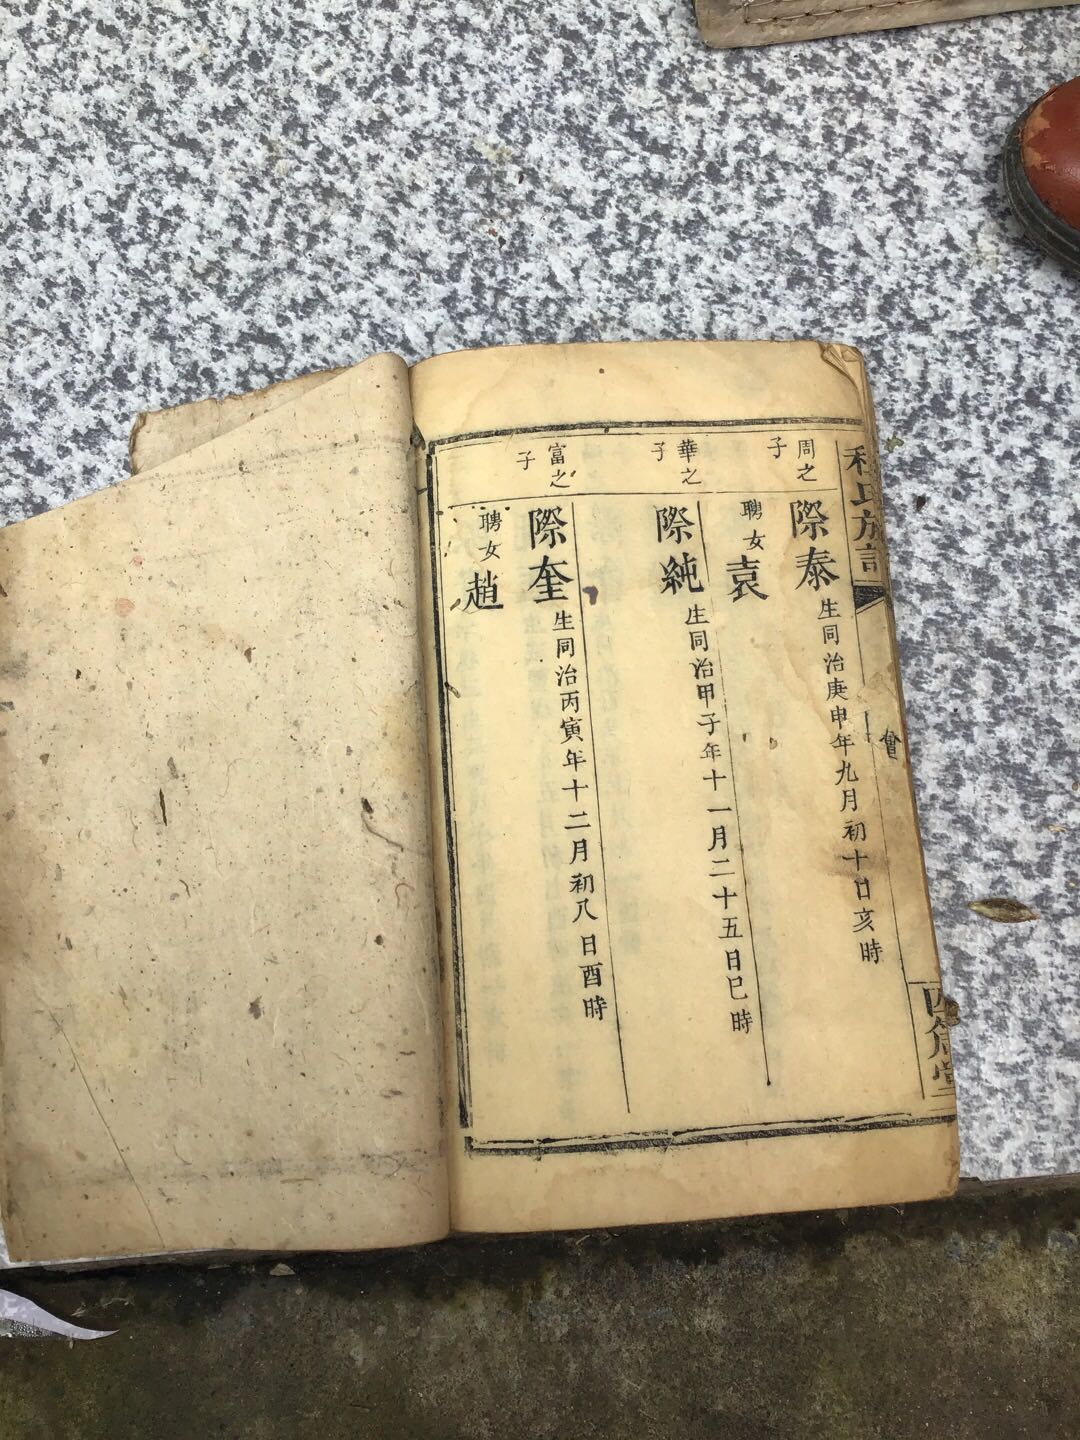 氏族譜
會
周之子
際泰 生同治庚申年九月初十日亥時
聘女袁
華之子
際純 生同治甲子年十一月二十五日巳時
富之子
際奎 生同治丙寅年十二月初八日酉時
聘女趙